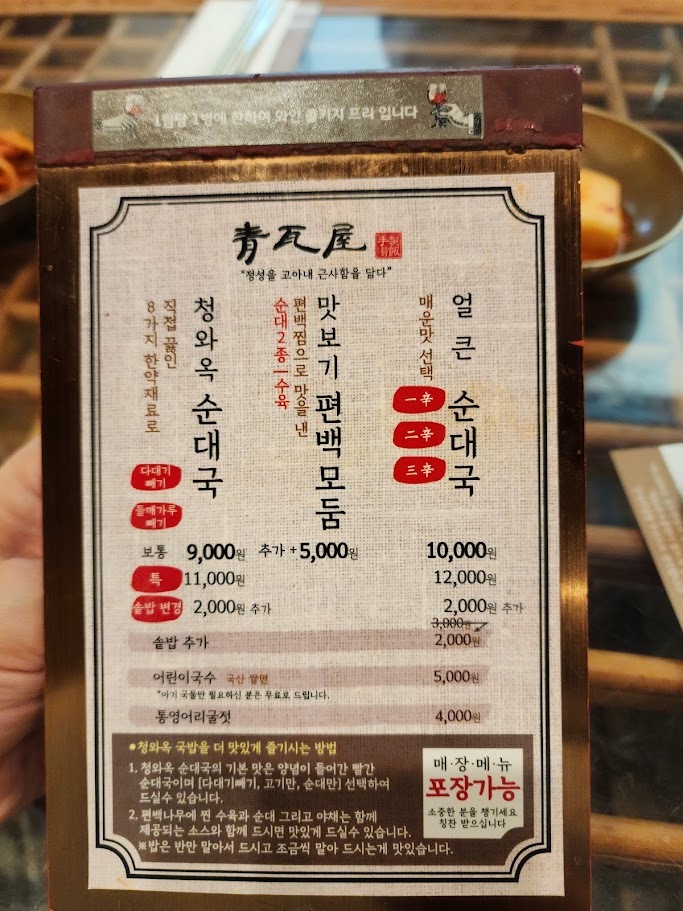 1팀당 1병에 한하여 와인 콜키지 프리 입니다
青瓦屋
手製
湯飯
"정성을 고아내 근사함을 담다"
얼큰 순대국
매운맛 선택
一辛
二辛
三辛
맛보기 편백모둠
편백찜으로 맛을 낸
순대2종 — 수육
청와옥 순대국
직접 끓인
8가지 한약재료로
다대기
빼기
들깨가루
빼기
보통 9,000원 추가 + 5,000원 10,000원
특 11,000원 12,000원
솥밥 변경 2,000원 추가 2,000원 추가
솥밥 추가 3,000원 2,000원
어린이국수 국산 쌀면 5,000원
*아기 국물만 필요하신 분은 무료로 드립니다.
통영어리굴젓 4,000원
●청와옥 국밥을 더 맛있게 즐기시는 방법
1. 청와옥 순대국의 기본 맛은 양념이 들어간 빨간
순대국이며 [다대기빼기, 고기만, 순대만] 선택하여
드실수 있습니다.
2. 편백나무에 찐 수육과 순대 그리고 야채는 함께
제공되는 소스와 함께 드시면 맛있게 드실수 있습니다.
※밥은 반만 말아서 드시고 조금씩 말아 드시는게 맛있습니다.
매·장·메·뉴
포장가능
소중한 분을 챙기세요
칭찬 받으십니다